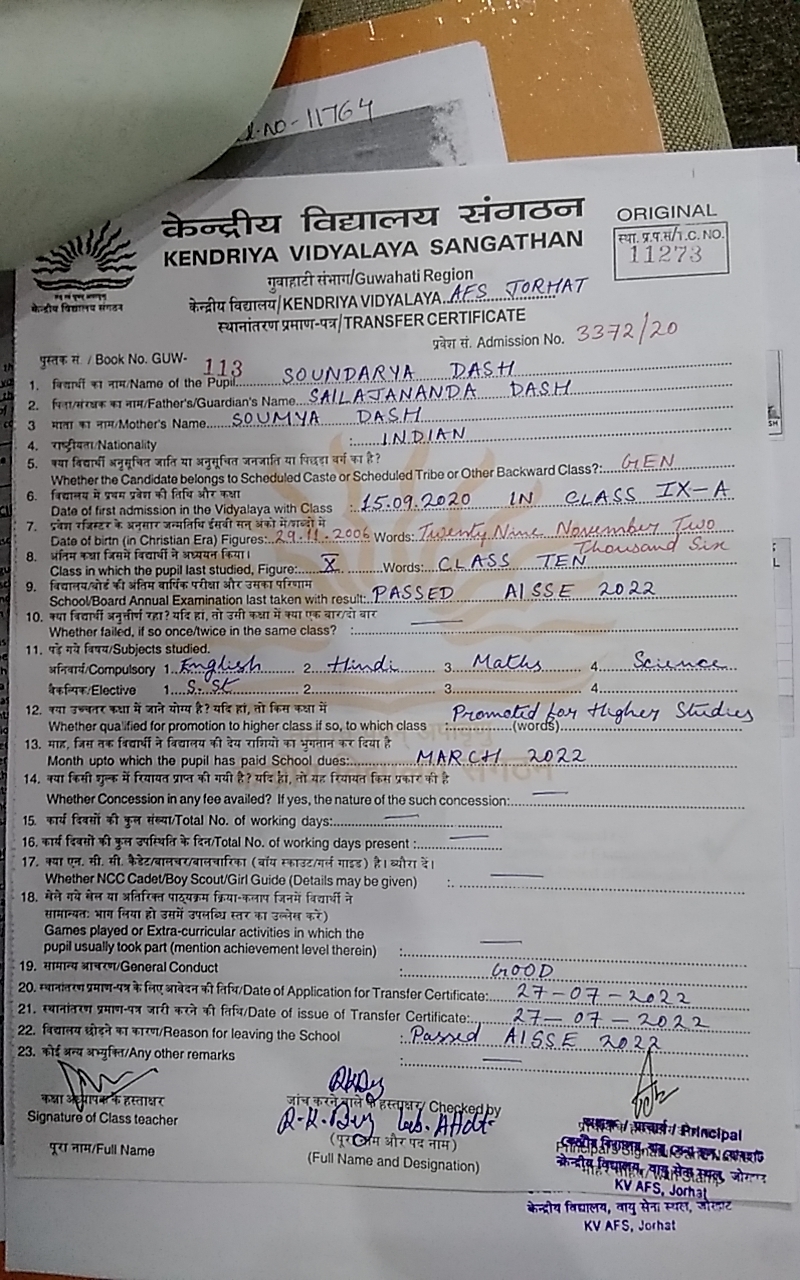 -no-11764
केन्द्रीय विद्यालय संगठन
ORIGINAL
KENDRIYA VIDYALAYA SANGATHAN
स्था.प्र.प.सं/T.C. NO.
11273
केन्द्रीय विद्यालय संगठन
गुवाहाटी संभाग/Guwahati Region
केन्द्रीय विद्यालय/KENDRIYA VIDYALAYA AFS JORHAT
स्थानांतरण प्रमाण-पत्र/TRANSFER CERTIFICATE
प्रवेश सं. Admission No. 3372/20
पुस्तक सं. / Book No. GUW- 113
1. विद्यार्थी का नाम/Name of the Pupil SOUNDARYA DASH
2. पिता/संरक्षक का नाम/Father's/Guardian's Name SAILAJANANDA DASH
3 माता का नाम/Mother's Name SOUMYA DASH
4. राष्ट्रीयता/Nationality : INDIAN
5. क्या विद्यार्थी अनुसूचित जाति या अनुसूचित जनजाति या पिछड़ा वर्ग का है?
Whether the Candidate belongs to Scheduled Caste or Scheduled Tribe or Other Backward Class?: GEN
6. विद्यालय में प्रथम प्रवेश की तिथि और कक्षा
Date of first admission in the Vidyalaya with Class : 15.09.2020 IN CLASS IX-A
7. प्रवेश रजिस्टर के अनुसार जन्मतिथि ईसवी सन् अंको में/शब्दों में
Date of birth (in Christian Era) Figures: 29.11.2006 Words: Twenty Nine November Two
Thousand Six
8. अंतिम कक्षा जिसमें विद्यार्थी ने अध्ययन किया।
Class in which the pupil last studied, Figure: X Words: CLASS TEN
9. विद्यालय/बोर्ड की अंतिम वार्षिक परीक्षा और उसका परिणाम
School/Board Annual Examination last taken with result: PASSED AISSE 2022
10. क्या विद्यार्थी अनुत्तीर्ण रहा? यदि हां, तो उसी कक्षा में क्या एक बार/दो बार
Whether failed, if so once/twice in the same class? :
11. पढ़े गये विषय/Subjects studied.
अनिवार्य/Compulsory 1. English 2. Hindi 3. Maths 4. Science
वैकल्पिक/Elective 1. S.St 2. 3. 4.
12. क्या उच्चतर कक्षा में जाने योग्य है? यदि हां, तो किस कक्षा में
Whether qualified for promotion to higher class if so, to which class : (words) Promoted for Higher Studies
13. माह, जिस तक विद्यार्थी ने विद्यालय की देय राशियों का भुगतान कर दिया है
Month upto which the pupil has paid School dues: MARCH 2022
14. क्या किसी शुल्क में रियायत प्राप्त की गयी है? यदि हां, तो यह रियायत किस प्रकार की है
Whether Concession in any fee availed? If yes, the nature of the such concession:
15. कार्य दिवसों की कुल संख्या/Total No. of working days:
16. कार्य दिवसों की कुल उपस्थिति के दिन/Total No. of working days present :
17. क्या एन. सी. सी. कैडेट/बालचर/बालचारिका (बॉय स्काउट/गर्ल गाइड) है। ब्यौरा दें।
Whether NCC Cadet/Boy Scout/Girl Guide (Details may be given) :
18. खेले गये खेल या अतिरिक्त पाठ्यक्रम क्रिया-कलाप जिनमें विद्यार्थी ने
सामान्यतः भाग लिया हो उसमें उपलब्धि स्तर का उल्लेख करें)
Games played or Extra-curricular activities in which the
pupil usually took part (mention achievement level therein) :
19. सामान्य आचरण/General Conduct : GOOD
20. स्थानांतरण प्रमाण-पत्र के लिए आवेदन की तिथि/Date of Application for Transfer Certificate: 27-07-2022
21. स्थानांतरण प्रमाण-पत्र जारी करने की तिथि/Date of issue of Transfer Certificate: 27-07-2022
22. विद्यालय छोड़ने का कारण/Reason for leaving the School : Passed AISSE 2022
23. कोई अन्य अभ्युक्ति/Any other remarks :
कक्षा अध्यापक के हस्ताक्षर
Signature of Class teacher
पूरा नाम/Full Name
जांच करने वाले के हस्ताक्षर/ Checked by
R.K. Dey Lab. Attdt
(पूरा नाम और पद नाम)
(Full Name and Designation)
प्राचार्य / Principal
केन्द्रीय विद्यालय, वायु सेना स्थल, जोरहाट
KV AFS, Jorhat
केन्द्रीय विद्यालय, वायु सेना स्थल, जोरहाट
KV AFS, Jorhat